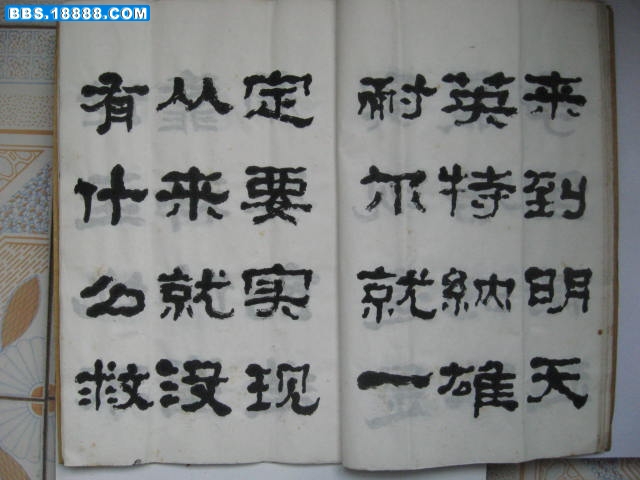 BBS.18888.COM
来到明天
英特納雄
耐尔就一
定要实现
从来就没
有什么救